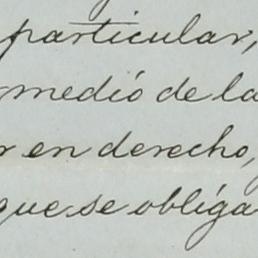 particular,
medió de la
r en derecho,
que se obliga